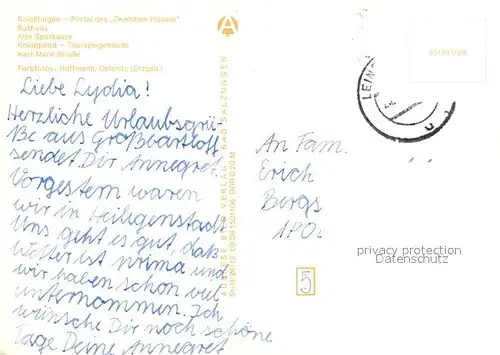 Knickhagen – Portal des „Zwetchen-Hauses"
Rathaus
Alte Sparkasse
Kneippbad – Therapiegebäude
Karl-Marx-Straße
Farbfotos: Hoffmann, Oelsnitz (Erzgeb.)
Liebe Lydia!
Herzliche Urlaubsgrü-
ße aus Großbartloff
sendet Dir Annegret.
Vorgestern waren
wir in Heiligenstadt.
Uns geht es gut, das
Wetter ist prima und
wir haben schon viel
unternommen. Ich
wünsche Dir noch schöne
Tage Deine Annegret
VERLAG BAD SALZUNGEN
LEIN
An Fam.
Erich
Bergs
APO
5
privacy protection
Datenschutz